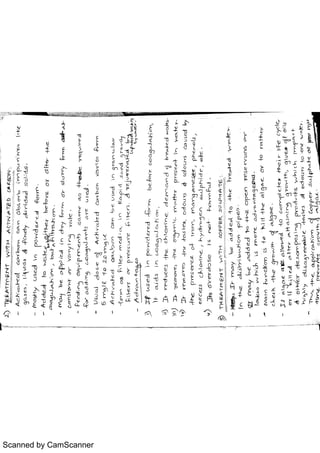 2) TREATMENT WITH ACTIVATED CARBON:
Activated carbon absorbs impurities like
gases, liquids & finely divided solids.
- Mostly used in powdered form.
- Added to water either before or after the
coagulation but filtration.
- May be applied in dry form or slurry form at
constant or varying rate.
- Feeding equipments same as those required
for adding coagulants are used.
- Usual dose of Activated carbon varies from
5 mg/l to 20 mg/l
- Activated carbon can be used in granular
form as filter media, in rapid sand gravity
filters or pressure filters & rejuvenated by
Advantages
i) If used in powdered form before coagulation,
it aids in coagulation.
ii) It reduces the chlorine demand of treated water.
iii) It removes the organic matter present in water.
iv) It removes colours, odours & colours caused by
the presence of iron, manganese, phenols,
excess chlorine, hydrogen sulphide, etc.
v) Its overdose is not harmful.
3) TREATMENT WITH COPPER SULPHATE:
- It may be added to the treated water
in the distribution pipes.
- It may be added to the open reservoirs or
lakes in which microorganisms
- Main function is to kill the algae or to rather
check the growth of algae.
- If algae are allowed to complete their life cycle,
or if killed after attaining growth, gives off oils
& other decomposition products which impart
highly disagreeable tastes & odours to the water.
- Thus the application of Copper sulphate at
time prevents growth of algae.
Scanned by CamScanner